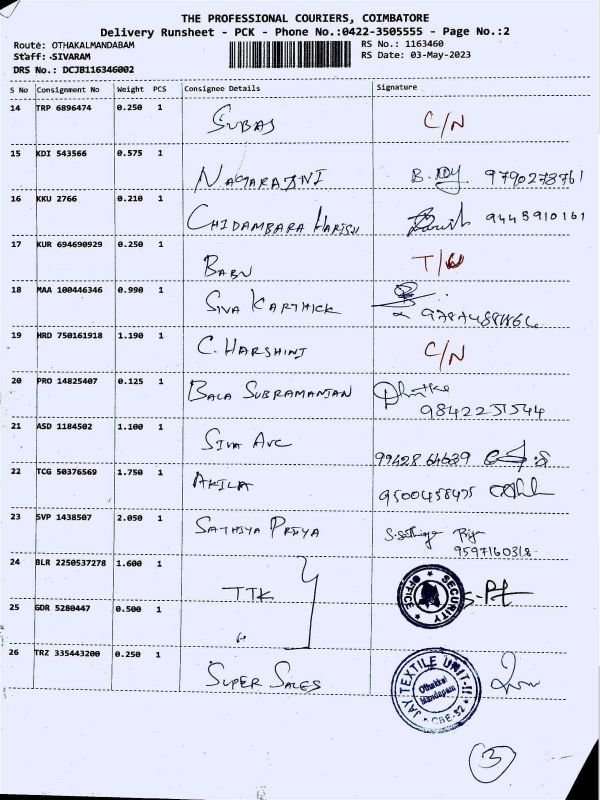 THE PROFESSIONAL COURIERS, COIMBATORE
Delivery Runsheet - PCK - Phone No.:0422-3505555 - Page No.:2
Route: OTHAKALMANDABAM RS No.: 1163460
Staff: SIVARAM RS Date: 03-May-2023
DRS No.: DCJB116346002
S No Consignment No Weight PCS Consignee Details Signature
14 TRP 6896474 0.250 1 SUBAS C/N
15 KDI 543566 0.575 1 NAGARADNI 9790278761
16 KKU 2766 0.210 1 CHIDAMBARA HARISH 9445910161
17 KUR 694690929 0.250 1 BABU
18 MAA 100446346 0.990 1 SIVA KARTHICK
19 HRD 750161918 1.190 1 C. HARSHINI C/N
20 PRO 14825407 0.125 1 BALA SUBRAMANIAN 9842251544
21 ASD 1184502 1.100 1 SIVA AVC 99428 64639
22 TCG 50376569 1.750 1 AKILA 9500458495
23 SVP 1438507 2.050 1 SATHIYA PRIYA S.Sathiya Priya
9597160318
24 BLR 2250537278 1.600 1 TTK SECURITY OFFICE
25 GDR 5280447 0.500 1
26 TRZ 335443200 0.250 1 SUPER SALES JAY TEXTILE UNIT-II Othakkal Mandapam CBE-32
3